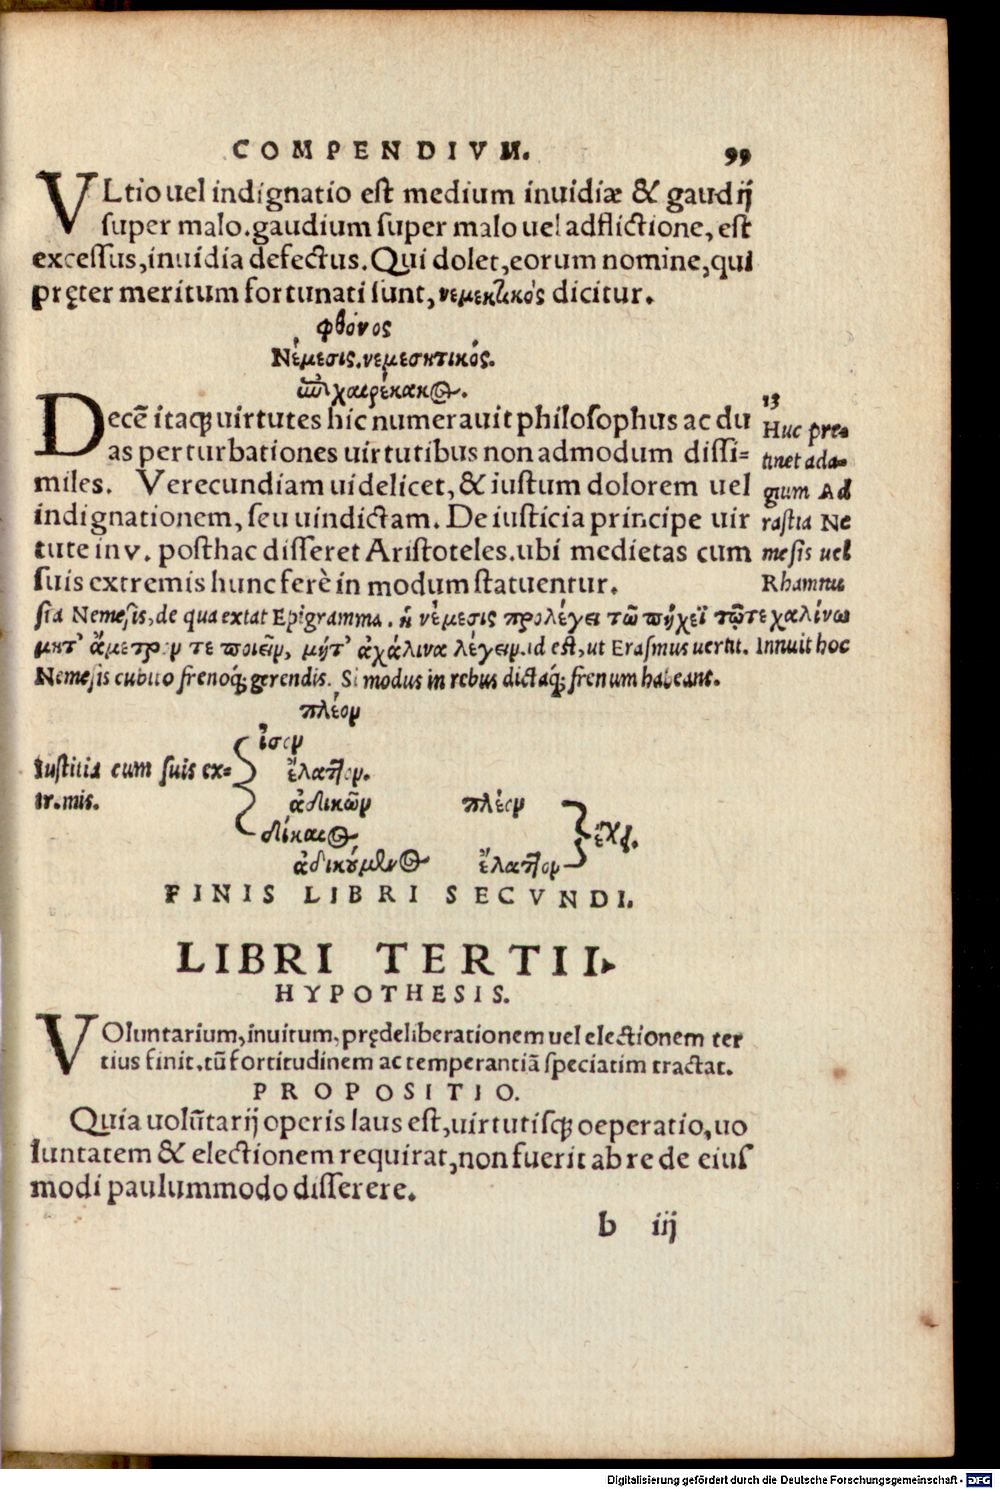 COMPENDIVM. 99
VLtio uel indignatio est medium inuidiæ & gaudij
super malo.gaudium super malo uel adflictione, est
excessus,inuidia defectus.Qui dolet,eorum nomine,qui
pręter meritum fortunati sunt, νεμεκτικός dicitur.
φθόνος
Νέμεσις.νεμεσητικός.
ἐπιχαιρέκακος.
Decẽ itaq; uirtutes hic numerauit philosophus ac du
as perturbationes uirtutibus non admodum dissi=
miles. Verecundiam uidelicet, & iustum dolorem uel
indignationem, seu uindictam. De iusticia principe uir
tute in v. posthac disseret Aristoteles.ubi medietas cum
suis extremis hunc ferè in modum statuentur.
13
Huc per=
tinet ada=
gium Ad
rastia Ne
mesis uel
Rhamnu
sia Nemesis, de qua extat Epigramma. ἡ νέμεσις προλέγει τῶ πήχεϊ τῷτε χαλίνω
μητ' ἄμετρον τε ποιεῖν, μήτ' ἀχάλινα λέγειν.id est, ut Erasmus uertit. Innuit hoc
Nemesis cubito frenoq; gerendis. Si modus in rebus dictaq; frenum habeant.
πλέον
ἴσον
Iustitia cum suis ex=
ἔλαττον.
tremis.
ἀδικῶν πλέον
δίκαιος ἔχει.
ἀδικούμενος ἔλαττον
FINIS LIBRI SECVNDI.
LIBRI TERTII
HYPOTHESIS.
VOluntarium, inuitum, prędeliberationem uel electionem ter
tius finit.tũ fortitudinem ac temperantiã speciatim tractat.
PROPOSITIO.
Quia uolũtarij operis laus est,uirtutisq; oeperatio,uo
luntatem & electionem requirat,non fuerit ab re de eius
modi paulummodo disserere.
b iij
Digitalisierung gefördert durch die Deutsche Forschungsgemeinschaft - DFG